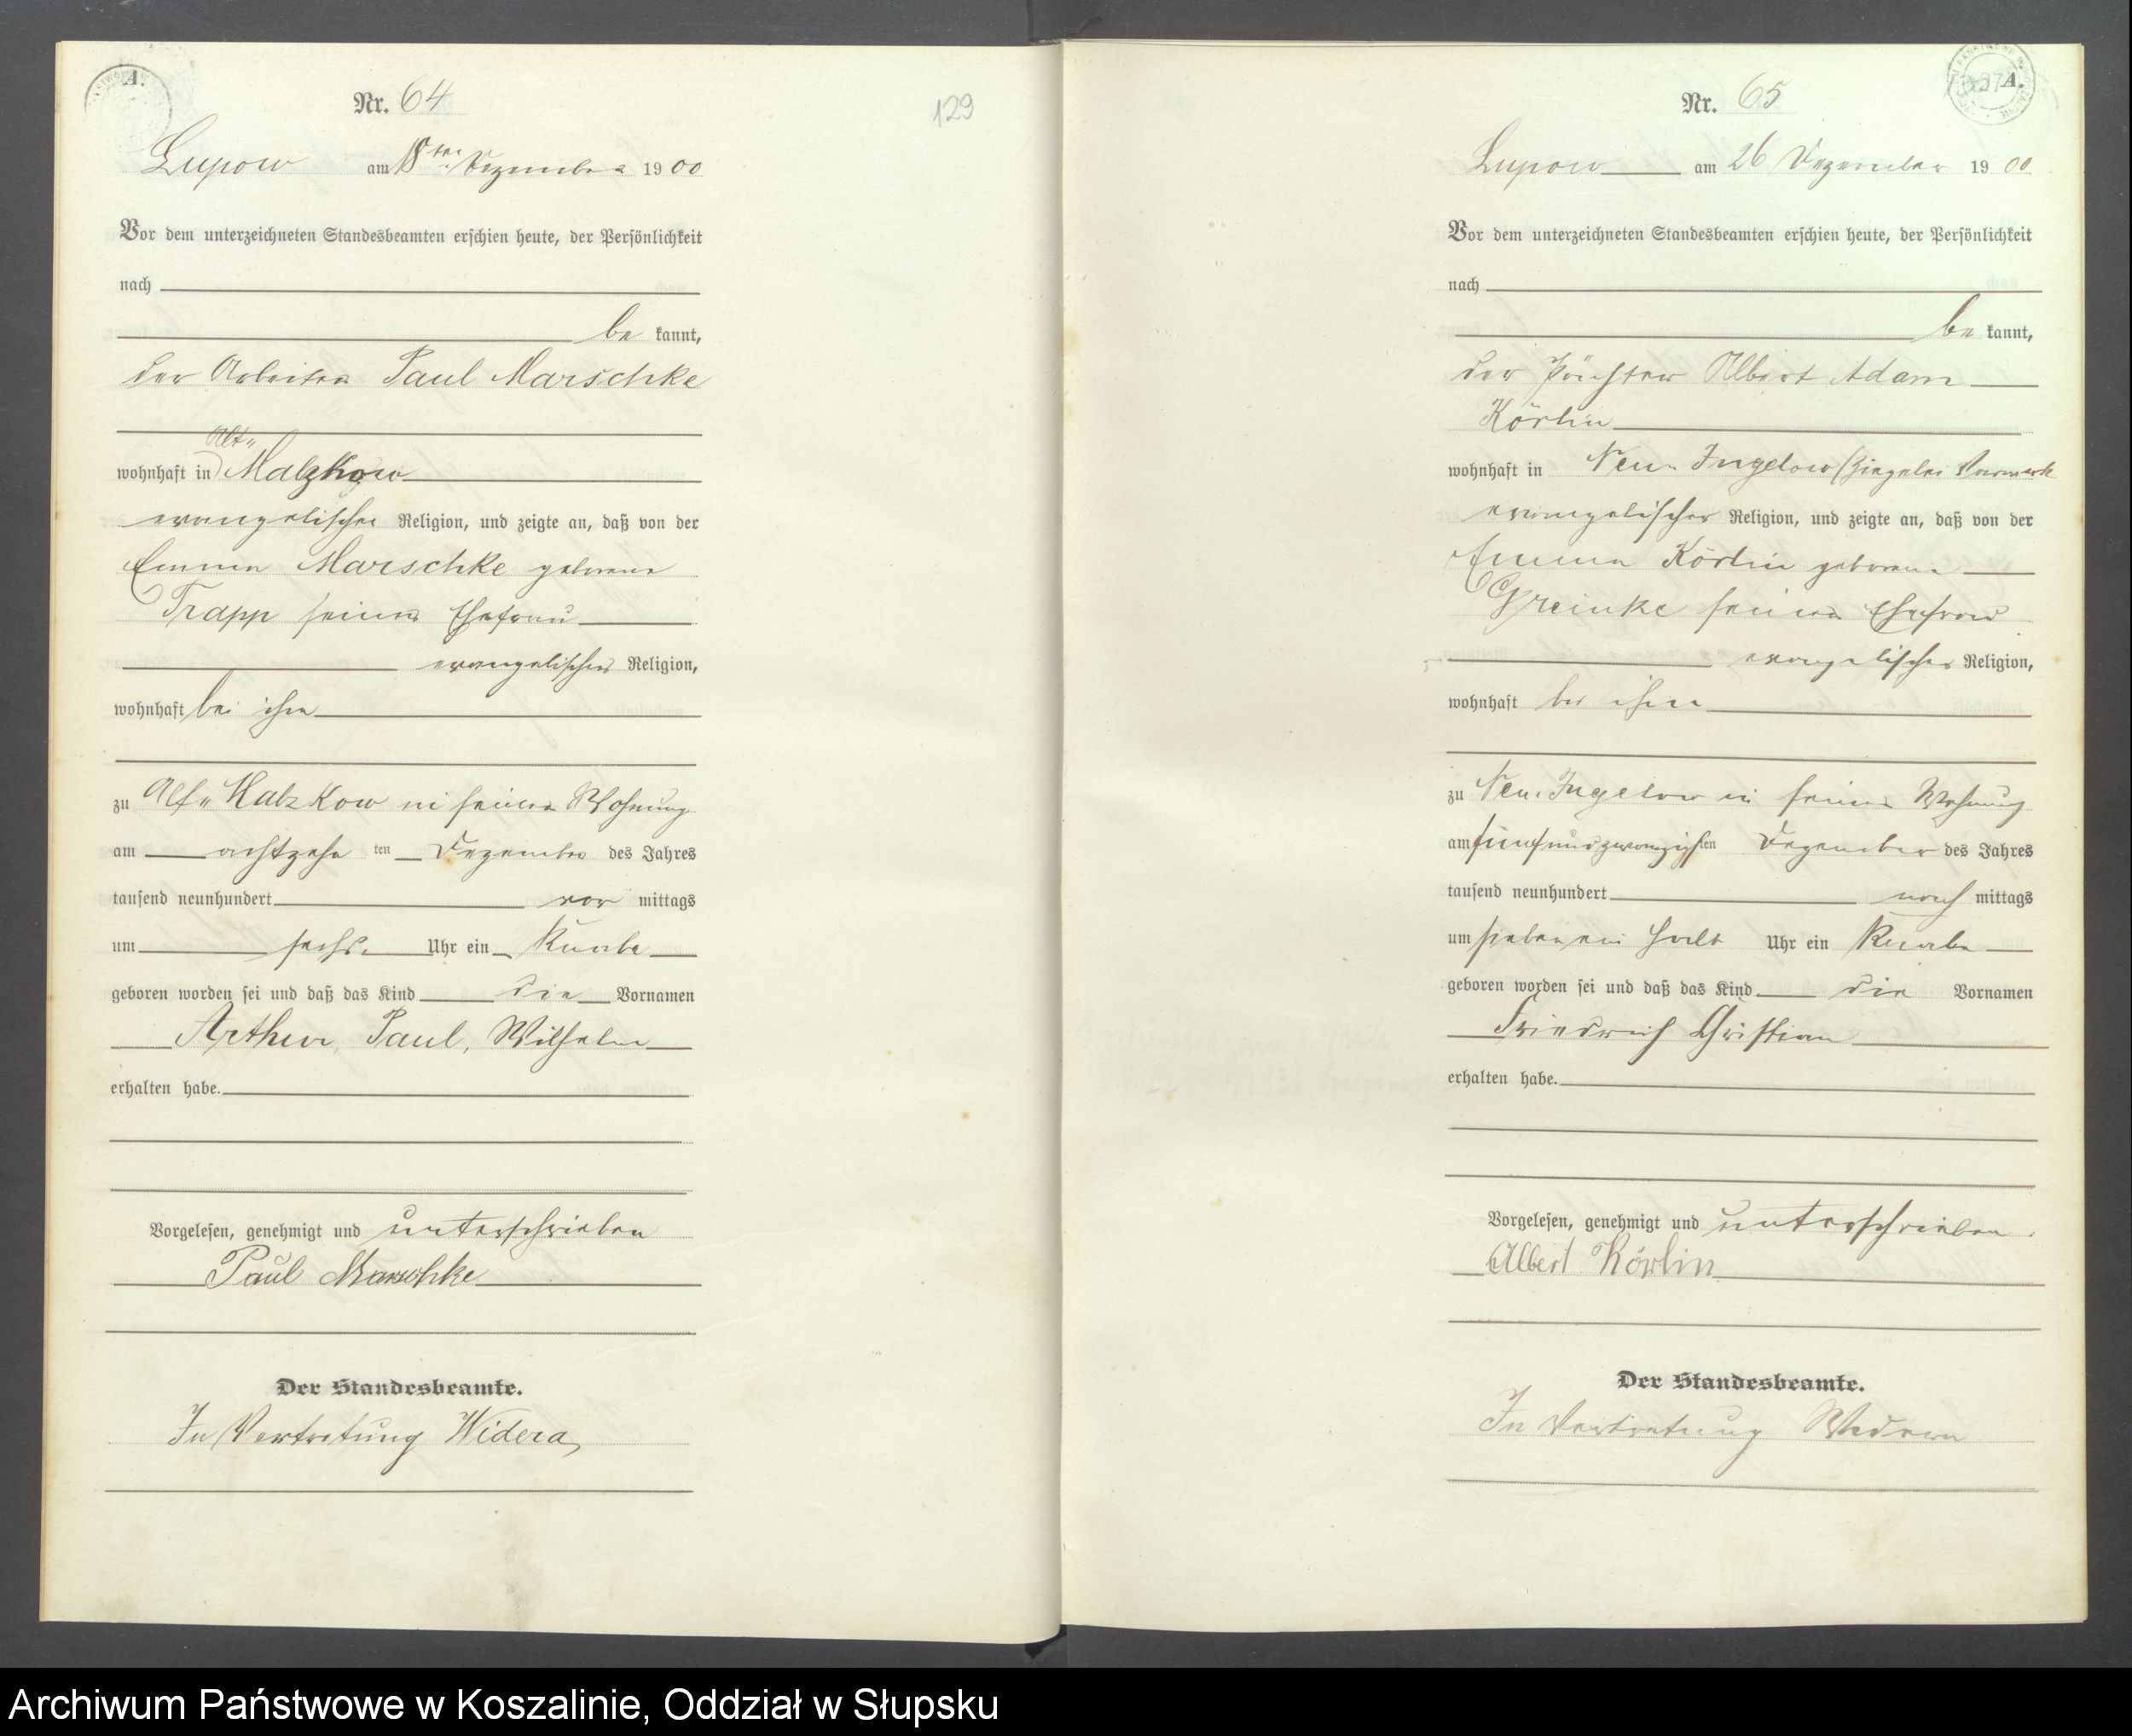 A.
Nr. 64
129
Lupow am 18ten Dezember 1900
Vor dem unterzeichneten Standesbeamten erschien heute, der Persönlichkeit
nach
be kannt,
der Arbeiter Paul Marschke
Alt-
wohnhaft in Malzkow
evangelischer Religion, und zeigte an, daß von der
Emma Marschke geborene
Trapp seiner Ehefrau
evangelischer Religion,
wohnhaft bei ihm
zu Alt- Malzkow in seiner Wohnung
am achtzehn ten Dezember des Jahres
tausend neunhundert vor mittags
um sechs Uhr ein Knabe
geboren worden sei und daß das Kind die Vornamen
Arthur, Paul, Wilhelm
erhalten habe.
Vorgelesen, genehmigt und unterschrieben
Paul Marschke
Der Standesbeamte.
In Vertretung Widera
A.
Nr. 65
Lupow am 26 Dezember 1900
Vor dem unterzeichneten Standesbeamten erschien heute, der Persönlichkeit
nach
be kannt,
der Albert Adam
Körlin
wohnhaft in Neu- Jugelow (Ziegelei Vorwerk
evangelischer Religion, und zeigte an, daß von der
Emma Körlin geborene
Greinke seiner Ehefrau
evangelischer Religion,
wohnhaft bei ihm
zu Neu- Jugelow in seiner Wohnung
am fünfundzwanzigsten Dezember des Jahres
tausend neunhundert nach mittags
um sieben ein halb Uhr ein Knabe
geboren worden sei und daß das Kind die Vornamen
Friedrich Christian
erhalten habe.
Vorgelesen, genehmigt und unterschrieben.
Albert Körlin
Der Standesbeamte.
In Vertretung Widera
Archiwum Państwowe w Koszalinie, Oddział w Słupsku